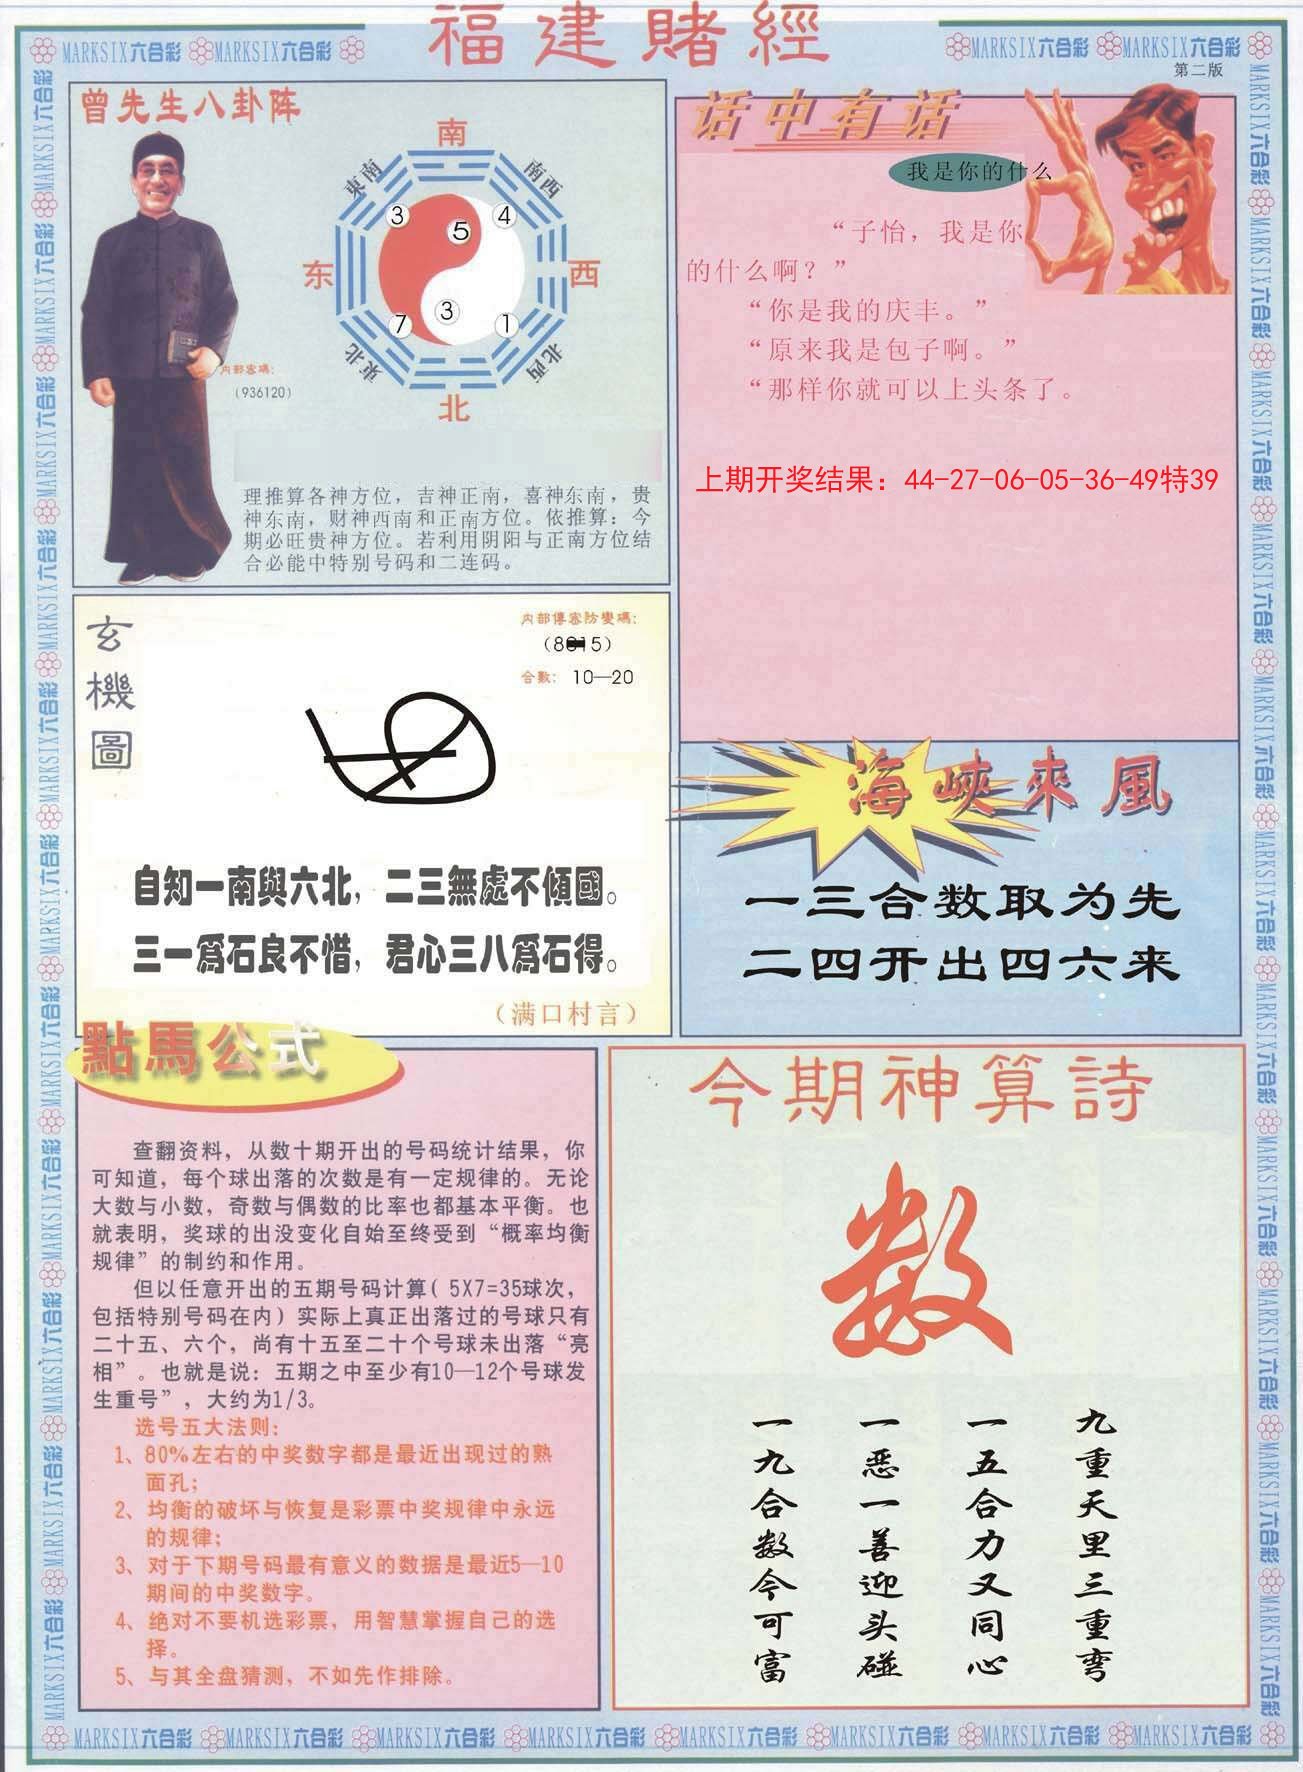 福建賭經
MARKSIX六合彩 MARKSIX六合彩
MARKSIX六合彩 MARKSIX六合彩
第二版
曾先生八卦阵
南
東南
南西
3
5
4
东
西
7
3
1
東北
北西
北
内部密碼:
(936120)
理推算各神方位，吉神正南，喜神东南，贵
神东南，财神西南和正南方位。依推算：今
期必旺贵神方位。若利用阴阳与正南方位结
合必能中特别号码和二连码。
话中有话
我是你的什么
“子怡，我是你
的什么啊？”
“你是我的庆丰。”
“原来我是包子啊。”
“那样你就可以上头条了。
上期开奖结果：44-27-06-05-36-49特39
玄機圖
内部傳密防變碼:
合數： 10—20
自知一南與六北，二三無處不傾國。
三一爲石良不惜，君心三八爲石得。
（满口村言）
海峽來風
一三合数取为先
二四开出四六来
點馬公式
查翻资料，从数十期开出的号码统计结果，你
可知道，每个球出落的次数是有一定规律的。无论
大数与小数，奇数与偶数的比率也都基本平衡。也
就表明，奖球的出没变化自始至终受到“概率均衡
规律”的制约和作用。
但以任意开出的五期号码计算( 5X7=35球次，
包括特别号码在内）实际上真正出落过的号球只有
二十五、六个，尚有十五至二十个号球未出落“亮
相”。也就是说：五期之中至少有10—12个号球发
生重号”，大约为1/3。
选号五大法则:
1、80%左右的中奖数字都是最近出现过的熟
面孔;
2、均衡的破坏与恢复是彩票中奖规律中永远
的规律;
3、对于下期号码最有意义的数据是最近5—10
期间的中奖数字。
4、绝对不要机选彩票，用智慧掌握自己的选
择。
5、与其全盘猜测，不如先作排除。
今期神算詩
数
九重天里三重弯
一五合力又同心
一恶一善迎头碰
一九合数今可富
MARKSIX六合彩 MARKSIX六合彩 MARKSIX六合彩 MARKSIX六合彩 MARKSIX六合彩 MARKSIX六合彩 MARKSIX六合彩 MARKSIX六合彩